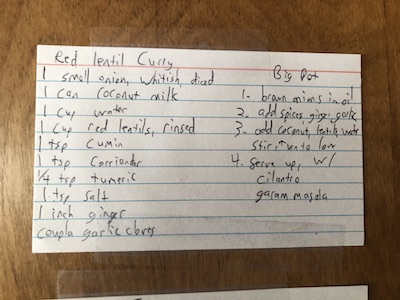 Red lentil Curry
1 small onion, whitish, diced
1 can coconut milk
1 cup water
1 cup red lentils, rinsed
1 tsp cumin
1 tsp Corriander
1/4 tsp tumeric
1 tsp salt
1 inch ginger
coupla garlic cloves
Big Pot
1- brown onions in oil
2. add spices, ginger, garlic
3- add coconut, lentils, water
stir, turn to low
4. serve up, w/
cilantro
garam masala